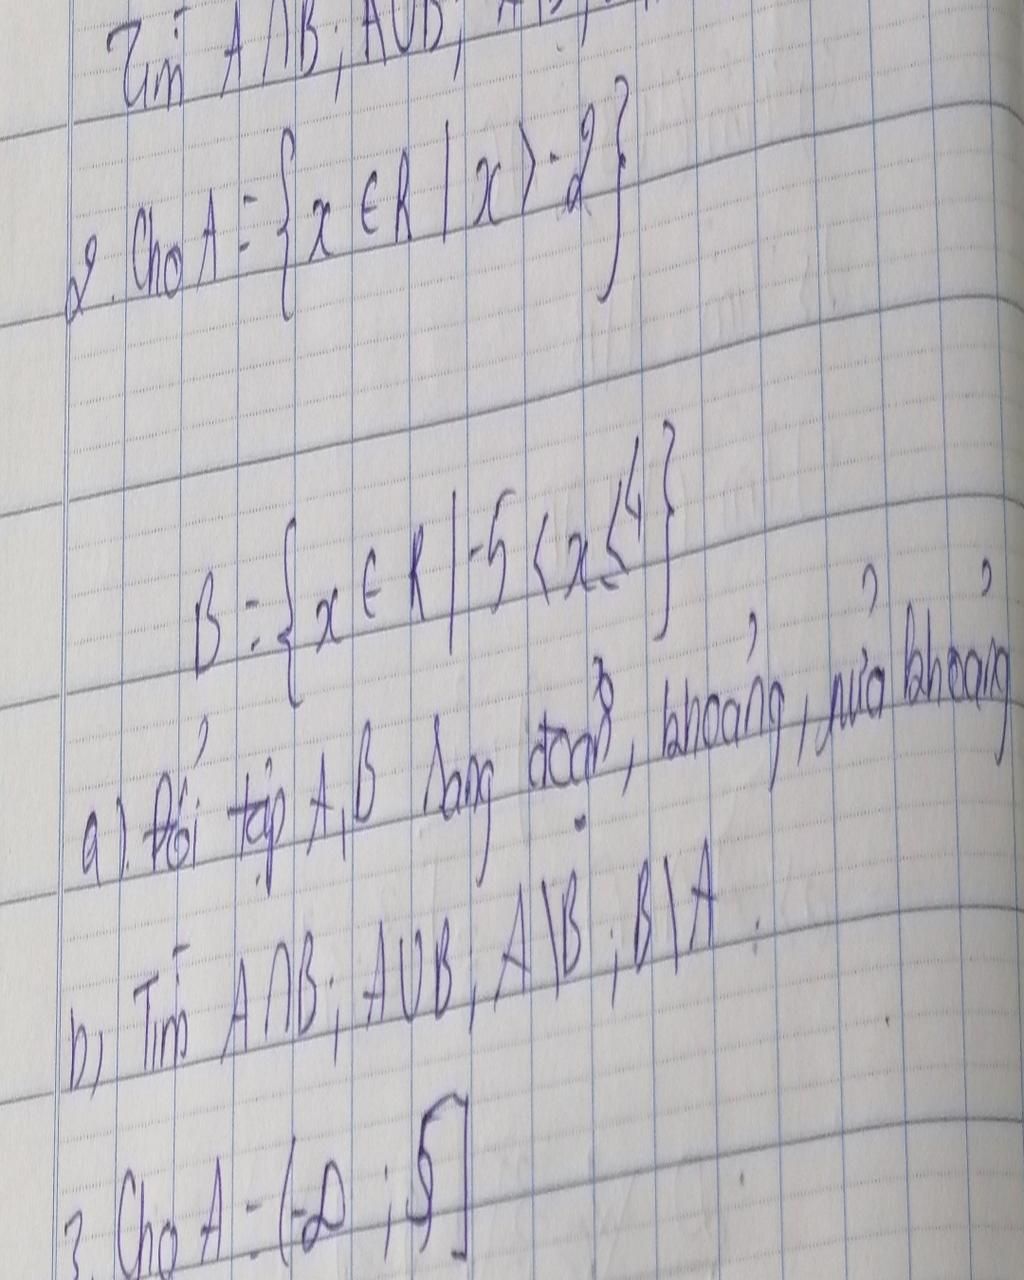 Tìm A∩B; A∪B;
2. Cho A = {x ∈ R | x > -2}
B = {x ∈ R | -5 < x ≤ 4}
a). Đổi tập A, B sang đoạn, khoảng, nửa khoảng
b, Tìm A∩B; A∪B; A\B; B\A.
3. Cho A = (-∞; 5]